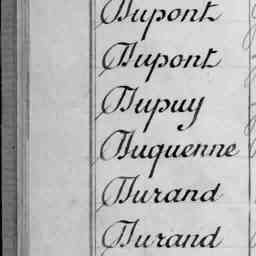 Dupont
Dupont
Dupuy
Duquenne
Durand
Durand